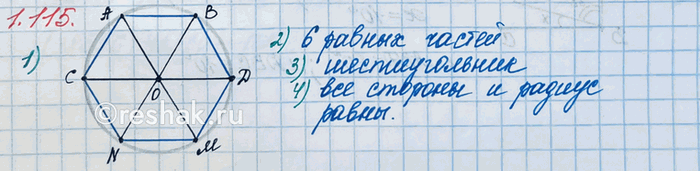 1.115.
1)
A B
C O D
N M
2) 6 равных частей
3) шестиугольник
4) все стороны и радиус
равны.
©reshak.ru